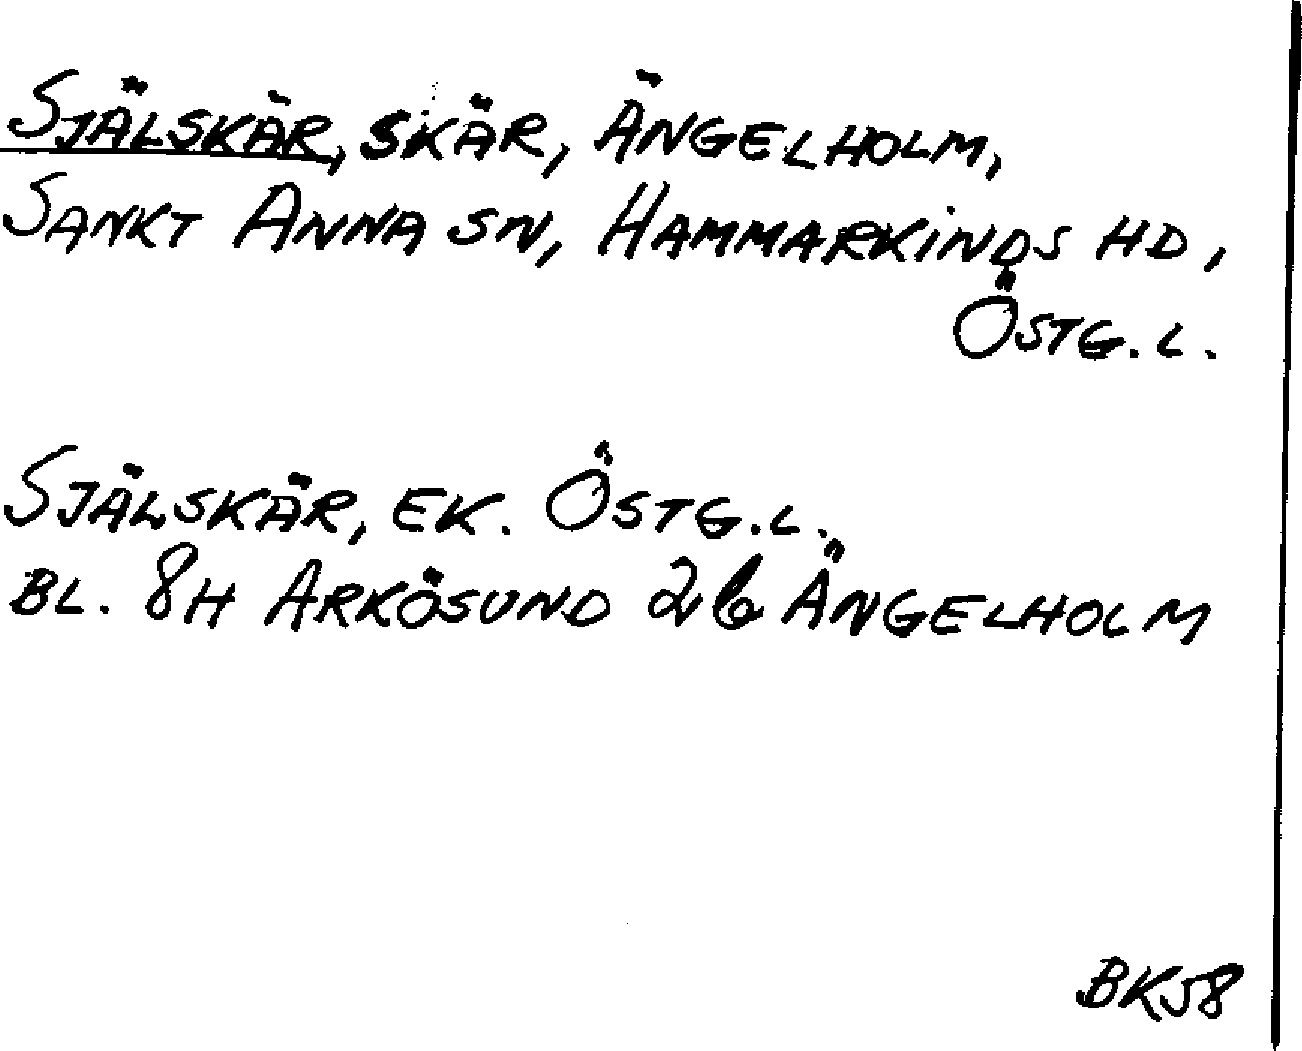 SJÄLSKÄR, SKÄR, ÄNGELHOLM,
SANKT ANNA SN, HAMMARKINDS HD,
ÖSTG.L.
SJÄLSKÄR, EK. ÖSTG.L.
BL. 8H ARKÖSUND 2b ÄNGELHOLM
BK58